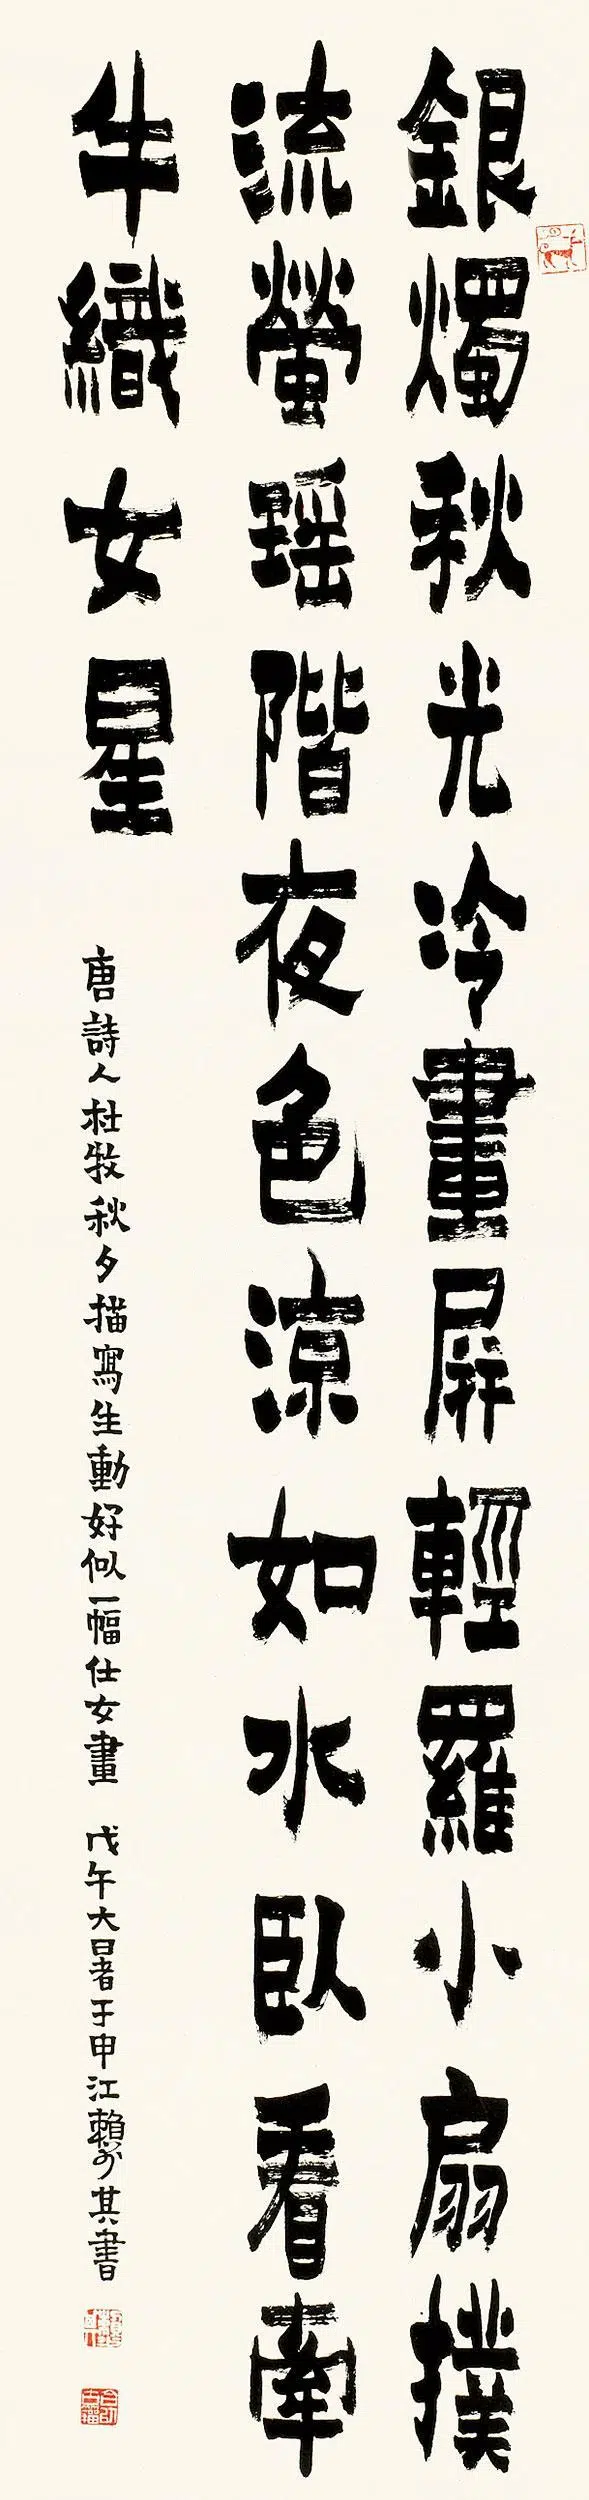 銀燭秋光冷畫屏輕羅小扇撲
流螢瑤階夜色涼如水臥看牽
牛織女星
唐詩人杜牧秋夕描寫生動好似一幅仕女畫 戊午大暑于申江賴少其書